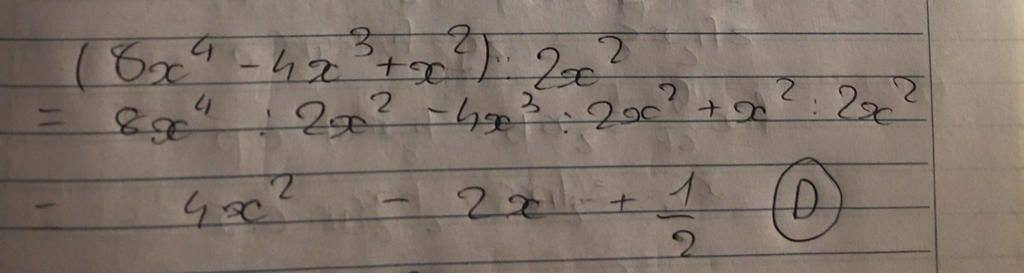 (8x⁴ - 4x³ + x²) : 2x²
= 8x⁴ : 2x² - 4x³ : 2x² + x² : 2x²
- 4x² - 2x + 1/2 D